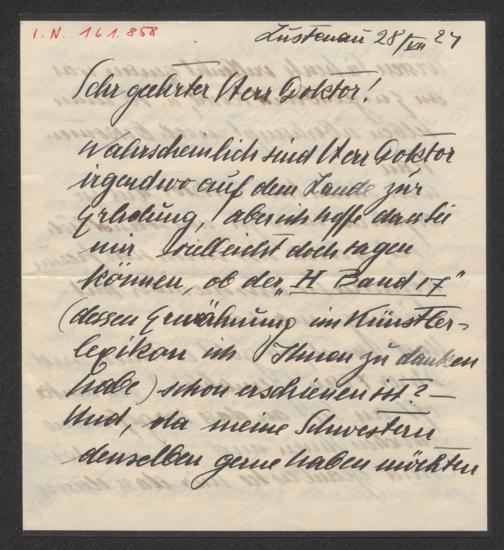 I. N. 161.858
Lustenau 28/VII 24
Sehr geehrter Herr Doktor!
Wahrscheinlich sind Herr Doktor
irgendwo auf dem Lande zur
Erholung, aber ich hoffe daß Sie
mir vielleicht doch sagen
können, ob der „H Band 17"
(dessen Erwähnung im Künstler-
lexikon ich Ihnen zu danken
habe) schon erschienen ist? –
Und, da meine Schwestern
denselben gerne haben möchten